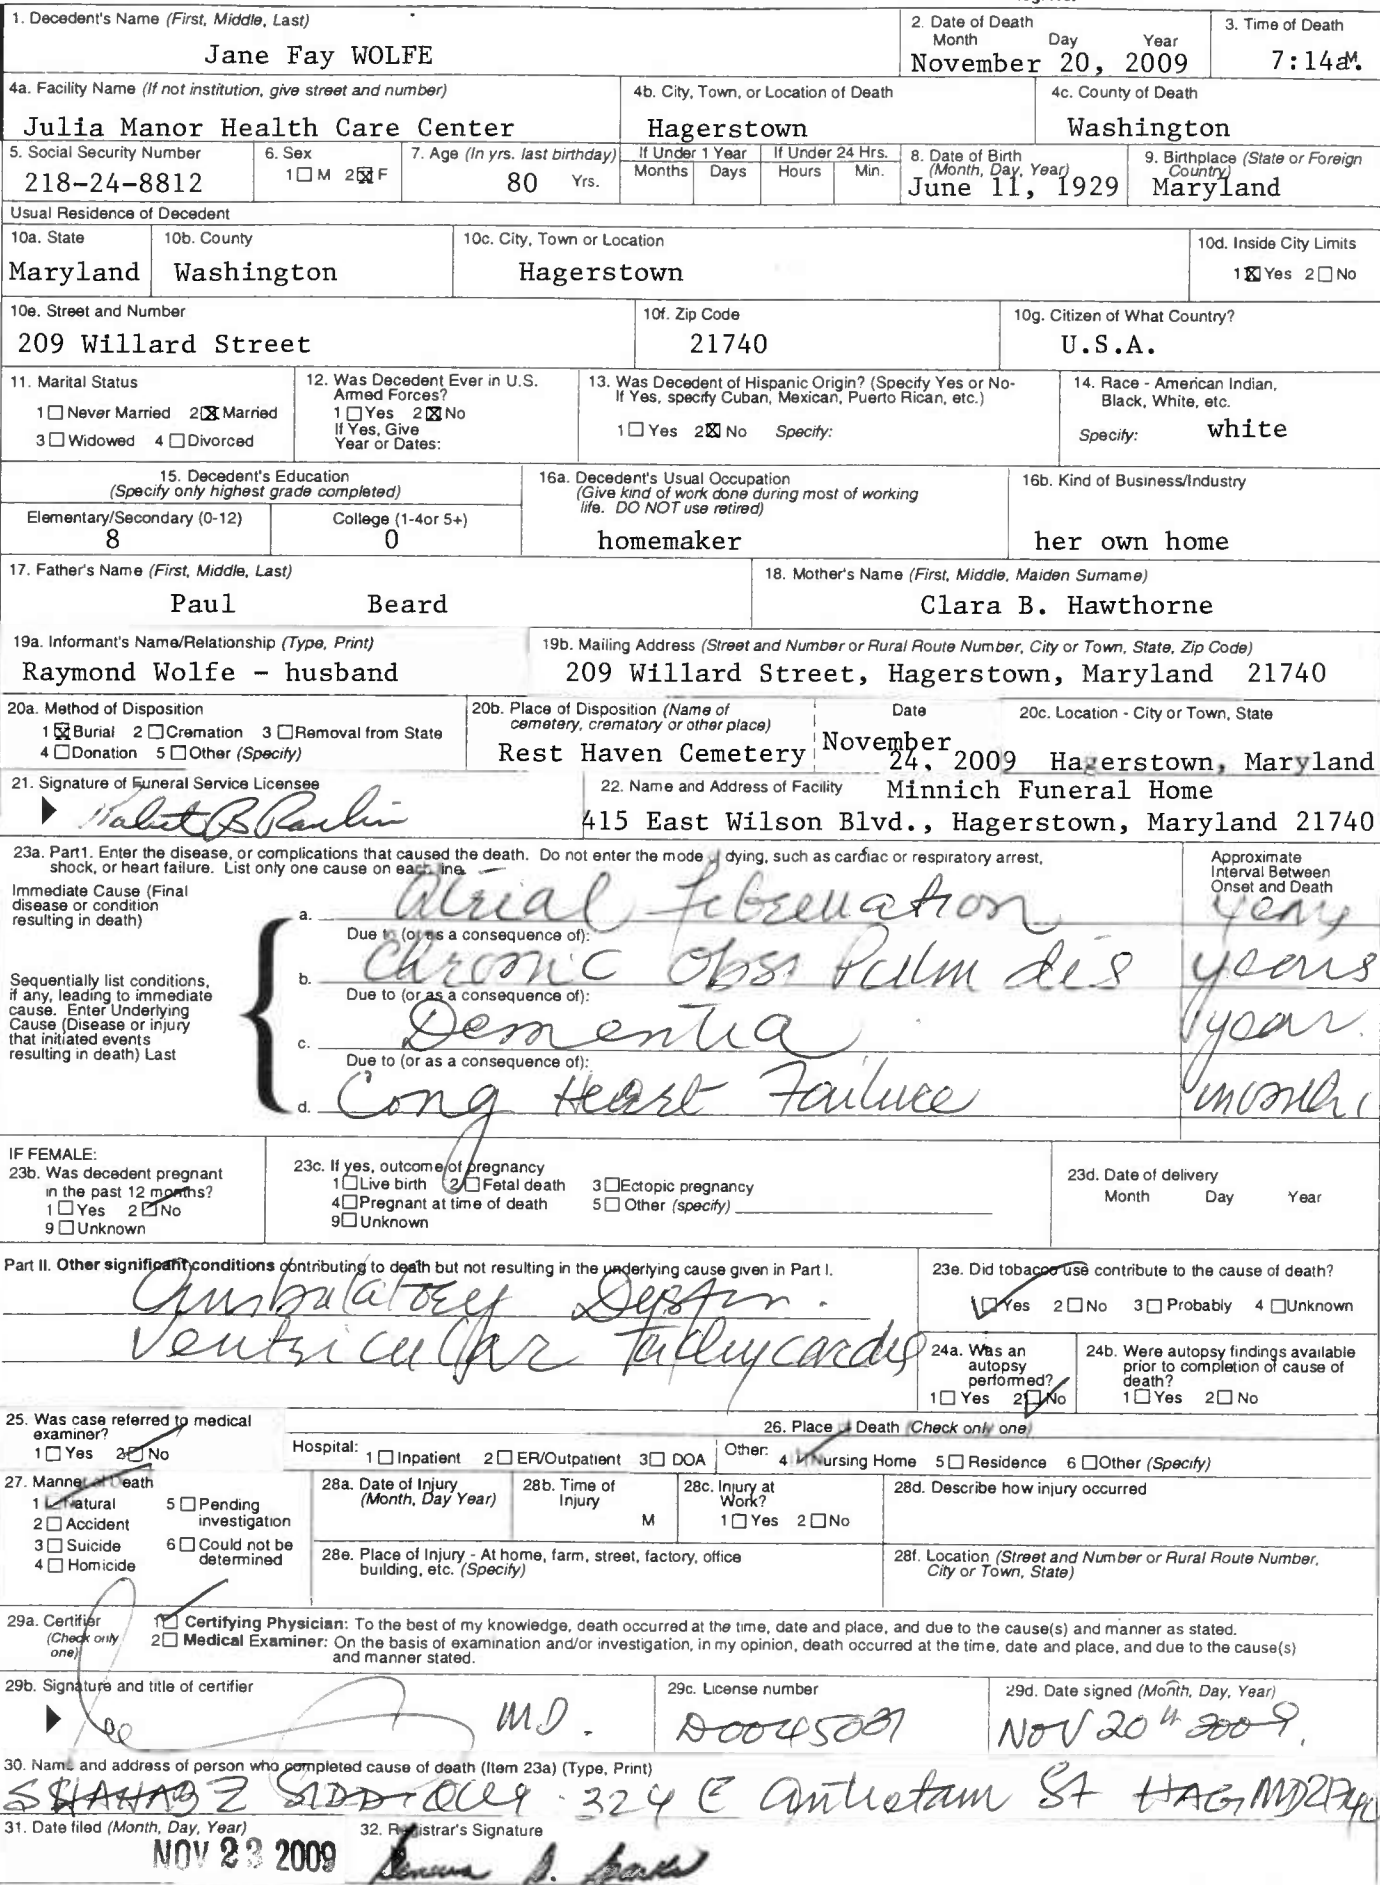 1. Decedent's Name (First, Middle, Last)
Jane Fay WOLFE
2. Date of Death
Month Day Year
November 20, 2009
3. Time of Death
7:14aM.
4a. Facility Name (If not institution, give street and number)
Julia Manor Health Care Center
4b. City, Town, or Location of Death
Hagerstown
4c. County of Death
Washington
5. Social Security Number
218-24-8812
6. Sex
1 M 2 F
7. Age (In yrs. last birthday)
80 Yrs.
If Under 1 Year
Months Days
If Under 24 Hrs.
Hours Min.
8. Date of Birth
(Month, Day, Year)
June 11, 1929
9. Birthplace (State or Foreign
Country)
Maryland
Usual Residence of Decedent
10a. State
Maryland
10b. County
Washington
10c. City, Town or Location
Hagerstown
10d. Inside City Limits
1 Yes 2 No
10e. Street and Number
209 Willard Street
10f. Zip Code
21740
10g. Citizen of What Country?
U.S.A.
11. Marital Status
1 Never Married 2 Married
3 Widowed 4 Divorced
12. Was Decedent Ever in U.S.
Armed Forces?
1 Yes 2 No
If Yes, Give
Year or Dates:
13. Was Decedent of Hispanic Origin? (Specify Yes or No-
If Yes, specify Cuban, Mexican, Puerto Rican, etc.)
1 Yes 2 No Specify:
14. Race - American Indian,
Black, White, etc.
Specify: white
15. Decedent's Education
(Specify only highest grade completed)
Elementary/Secondary (0-12)
8
College (1-4or 5+)
0
16a. Decedent's Usual Occupation
(Give kind of work done during most of working
life. DO NOT use retired)
homemaker
16b. Kind of Business/Industry
her own home
17. Father's Name (First, Middle, Last)
Paul Beard
18. Mother's Name (First, Middle, Maiden Surname)
Clara B. Hawthorne
19a. Informant's Name/Relationship (Type, Print)
Raymond Wolfe - husband
19b. Mailing Address (Street and Number or Rural Route Number, City or Town, State, Zip Code)
209 Willard Street, Hagerstown, Maryland 21740
20a. Method of Disposition
1 Burial 2 Cremation 3 Removal from State
4 Donation 5 Other (Specify)
20b. Place of Disposition (Name of
cemetery, crematory or other place)
Rest Haven Cemetery
Date
November
24, 2009
20c. Location - City or Town, State
Hagerstown, Maryland
21. Signature of Funeral Service Licensee
22. Name and Address of Facility Minnich Funeral Home
415 East Wilson Blvd., Hagerstown, Maryland 21740
23a. Part1. Enter the disease, or complications that caused the death. Do not enter the mode of dying, such as cardiac or respiratory arrest,
shock, or heart failure. List only one cause on each line.
Approximate
Interval Between
Onset and Death
Immediate Cause (Final
disease or condition
resulting in death)
a. Atrial Febrellation years
Due to (or as a consequence of):
Sequentially list conditions,
if any, leading to immediate
cause. Enter Underlying
Cause (Disease or injury
that initiated events
resulting in death) Last
b. Chronic Obst Pulm dis years
Due to (or as a consequence of):
c. Dementia year
Due to (or as a consequence of):
d. Cong Heart Failure months
IF FEMALE:
23b. Was decedent pregnant
in the past 12 months?
1 Yes 2 No
9 Unknown
23c. If yes, outcome of pregnancy
1 Live birth 2 Fetal death 3 Ectopic pregnancy
4 Pregnant at time of death 5 Other (specify)
9 Unknown
23d. Date of delivery
Month Day Year
Part II. Other significant conditions contributing to death but not resulting in the underlying cause given in Part I.
Ambulatory Dysfun.
Ventricular Tachycardia
23e. Did tobacco use contribute to the cause of death?
1 Yes 2 No 3 Probably 4 Unknown
24a. Was an
autopsy
performed?
1 Yes 2 No
24b. Were autopsy findings available
prior to completion of cause of
death?
1 Yes 2 No
25. Was case referred to medical
examiner?
1 Yes 2 No
26. Place of Death (Check only one)
Hospital: 1 Inpatient 2 ER/Outpatient 3 DOA
Other: 4 Nursing Home 5 Residence 6 Other (Specify)
27. Manner of Death
1 Natural 5 Pending
investigation
2 Accident
3 Suicide 6 Could not be
determined
4 Homicide
28a. Date of Injury
(Month, Day Year)
28b. Time of
Injury
M
28c. Injury at
Work?
1 Yes 2 No
28d. Describe how injury occurred
28e. Place of Injury - At home, farm, street, factory, office
building, etc. (Specify)
28f. Location (Street and Number or Rural Route Number,
City or Town, State)
29a. Certifier
(Check only
one)
1 Certifying Physician: To the best of my knowledge, death occurred at the time, date and place, and due to the cause(s) and manner as stated.
2 Medical Examiner: On the basis of examination and/or investigation, in my opinion, death occurred at the time, date and place, and due to the cause(s)
and manner stated.
29b. Signature and title of certifier
MD.
29c. License number
29d. Date signed (Month, Day, Year)
NOV 20th 2009.
30. Name and address of person who completed cause of death (Item 23a) (Type, Print)
SHAHAB Z SIDDIQUI 324 E Antietam St HAG MD 21740
31. Date filed (Month, Day, Year)
NOV 23 2009
32. Registrar's Signature